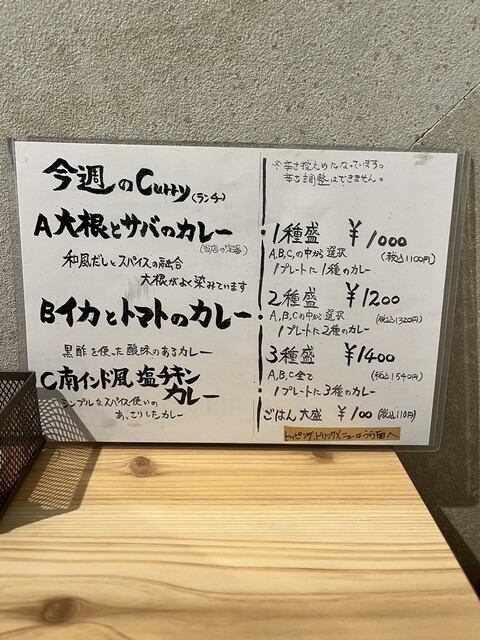 今週のCurry(ランチ)
A 大根とサバのカレー
(当店の定番)
和風だしとスパイスの融合
大根がよく染みています
B イカとトマトのカレー
黒酢を使った酸味のあるカレー
C 南インド風、塩チキン
カレー
シンプルなスパイス使いの
あっさりしたカレー
※辛さ控えめになっています。
辛さ調整はできません。
・1種盛 ¥1000
A,B,Cの中から選択 (税込1100円)
1プレートに1種のカレー
・2種盛 ¥1200
A,B,Cの中から選択 (税込1320円)
1プレートに2種のカレー
・3種盛 ¥1400
A,B,C全て (税込1540円)
1プレートに3種のカレー
ごはん大盛 ¥100 (税込110円)
トッピング、ドリンクメニューはうら面へ